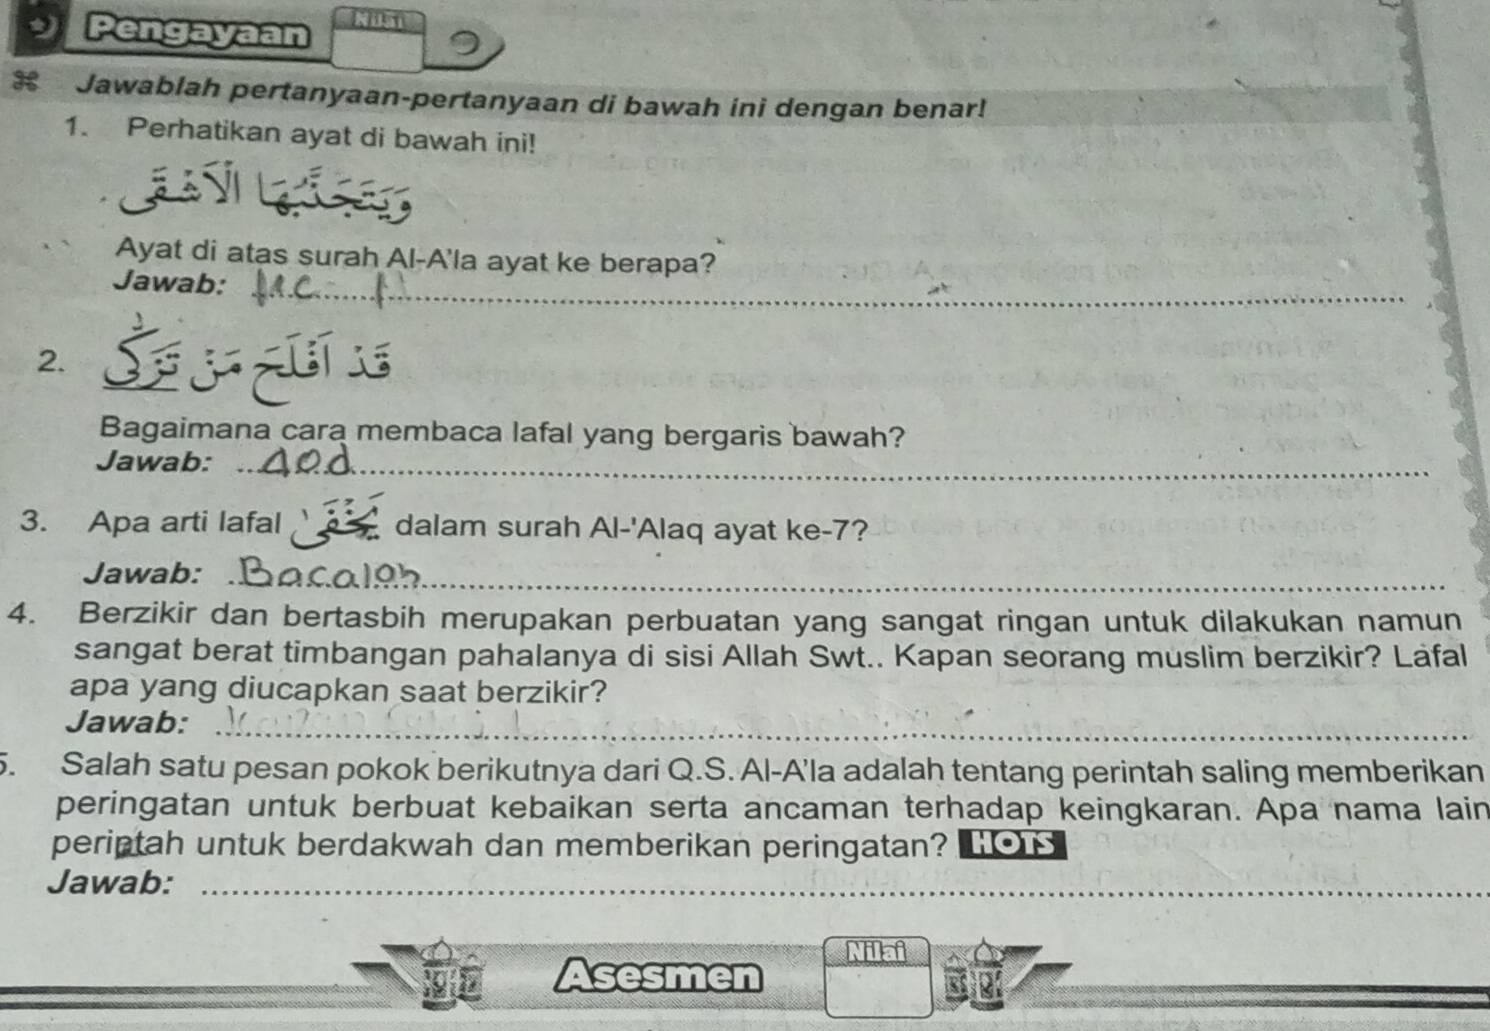 Pengayaan
Nilai
⌘ Jawablah pertanyaan-pertanyaan di bawah ini dengan benar!
1. Perhatikan ayat di bawah ini!
وَيَتَجَنَّبُهَا الْأَشْقَى
Ayat di atas surah Al-A'la ayat ke berapa?
Jawab:
2. قَدْ أَفْلَحَ مَنْ تَزَكّٰى
Bagaimana cara membaca lafal yang bergaris bawah?
Jawab:
3. Apa arti lafal يَخْفَى dalam surah Al-'Alaq ayat ke-7?
Jawab: Bacalah
4. Berzikir dan bertasbih merupakan perbuatan yang sangat ringan untuk dilakukan namun
sangat berat timbangan pahalanya di sisi Allah Swt.. Kapan seorang muslim berzikir? Lafal
apa yang diucapkan saat berzikir?
Jawab:
5. Salah satu pesan pokok berikutnya dari Q.S. Al-A'la adalah tentang perintah saling memberikan
peringatan untuk berbuat kebaikan serta ancaman terhadap keingkaran. Apa nama lain
perintah untuk berdakwah dan memberikan peringatan? HOTS
Jawab:
Asesmen
Nilai